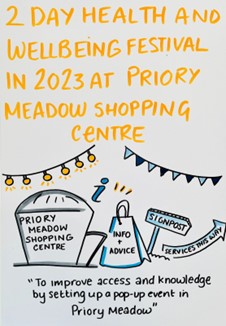 2 DAY HEALTH AND
WELLBEING FESTIVAL
IN 2023 AT PRIORY
MEADOW SHOPPING
CENTRE
i
PRIORY
MEADOW
SHOPPING
CENTRE
INFO
+
ADVICE
SIGNPOST
SERVICES THIS WAY
"To improve access and knowledge
by setting up a pop-up event in
Priory Meadow"